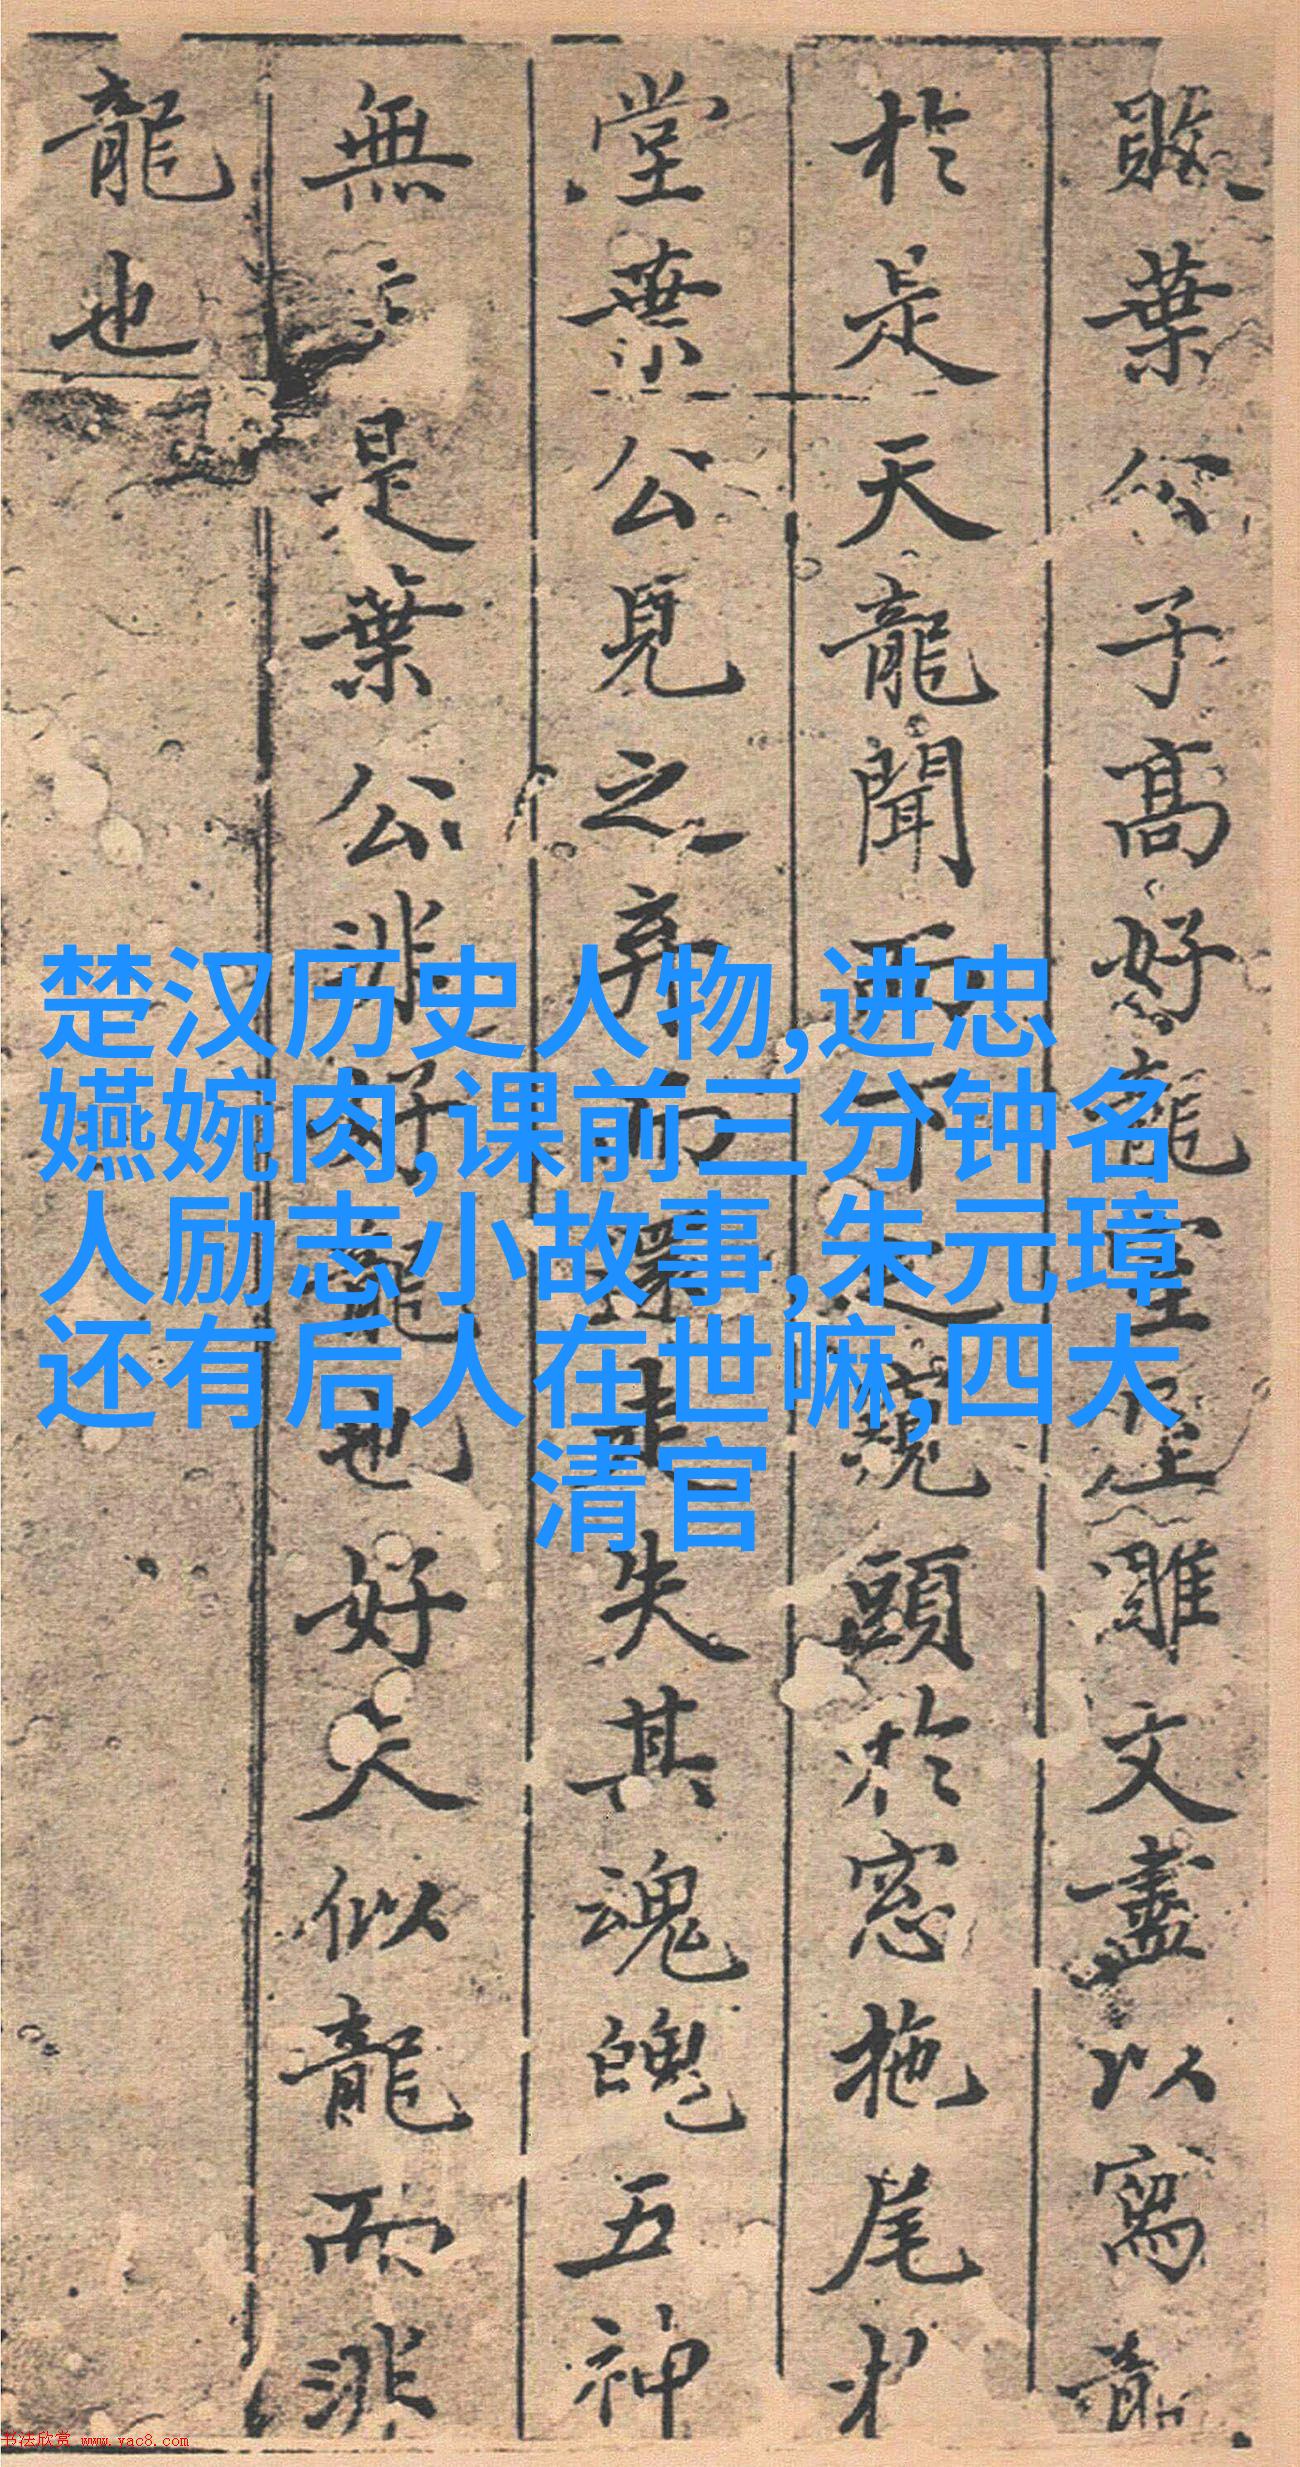 敗葉公子高好龍室屋雕文盡以寫龍
於是天龍聞而下之窺頭於窓拖尾於
堂葉公見之弃而還走失其魂魄五神
無主是葉公非好龍也好夫似龍而非
龍也
楚汉历史人物,进忠
嬿婉肉,课前三分钟名
人励志小故事,朱元璋
还有后人在世嘛,四大
清官
书法欣赏 www.yac8.com